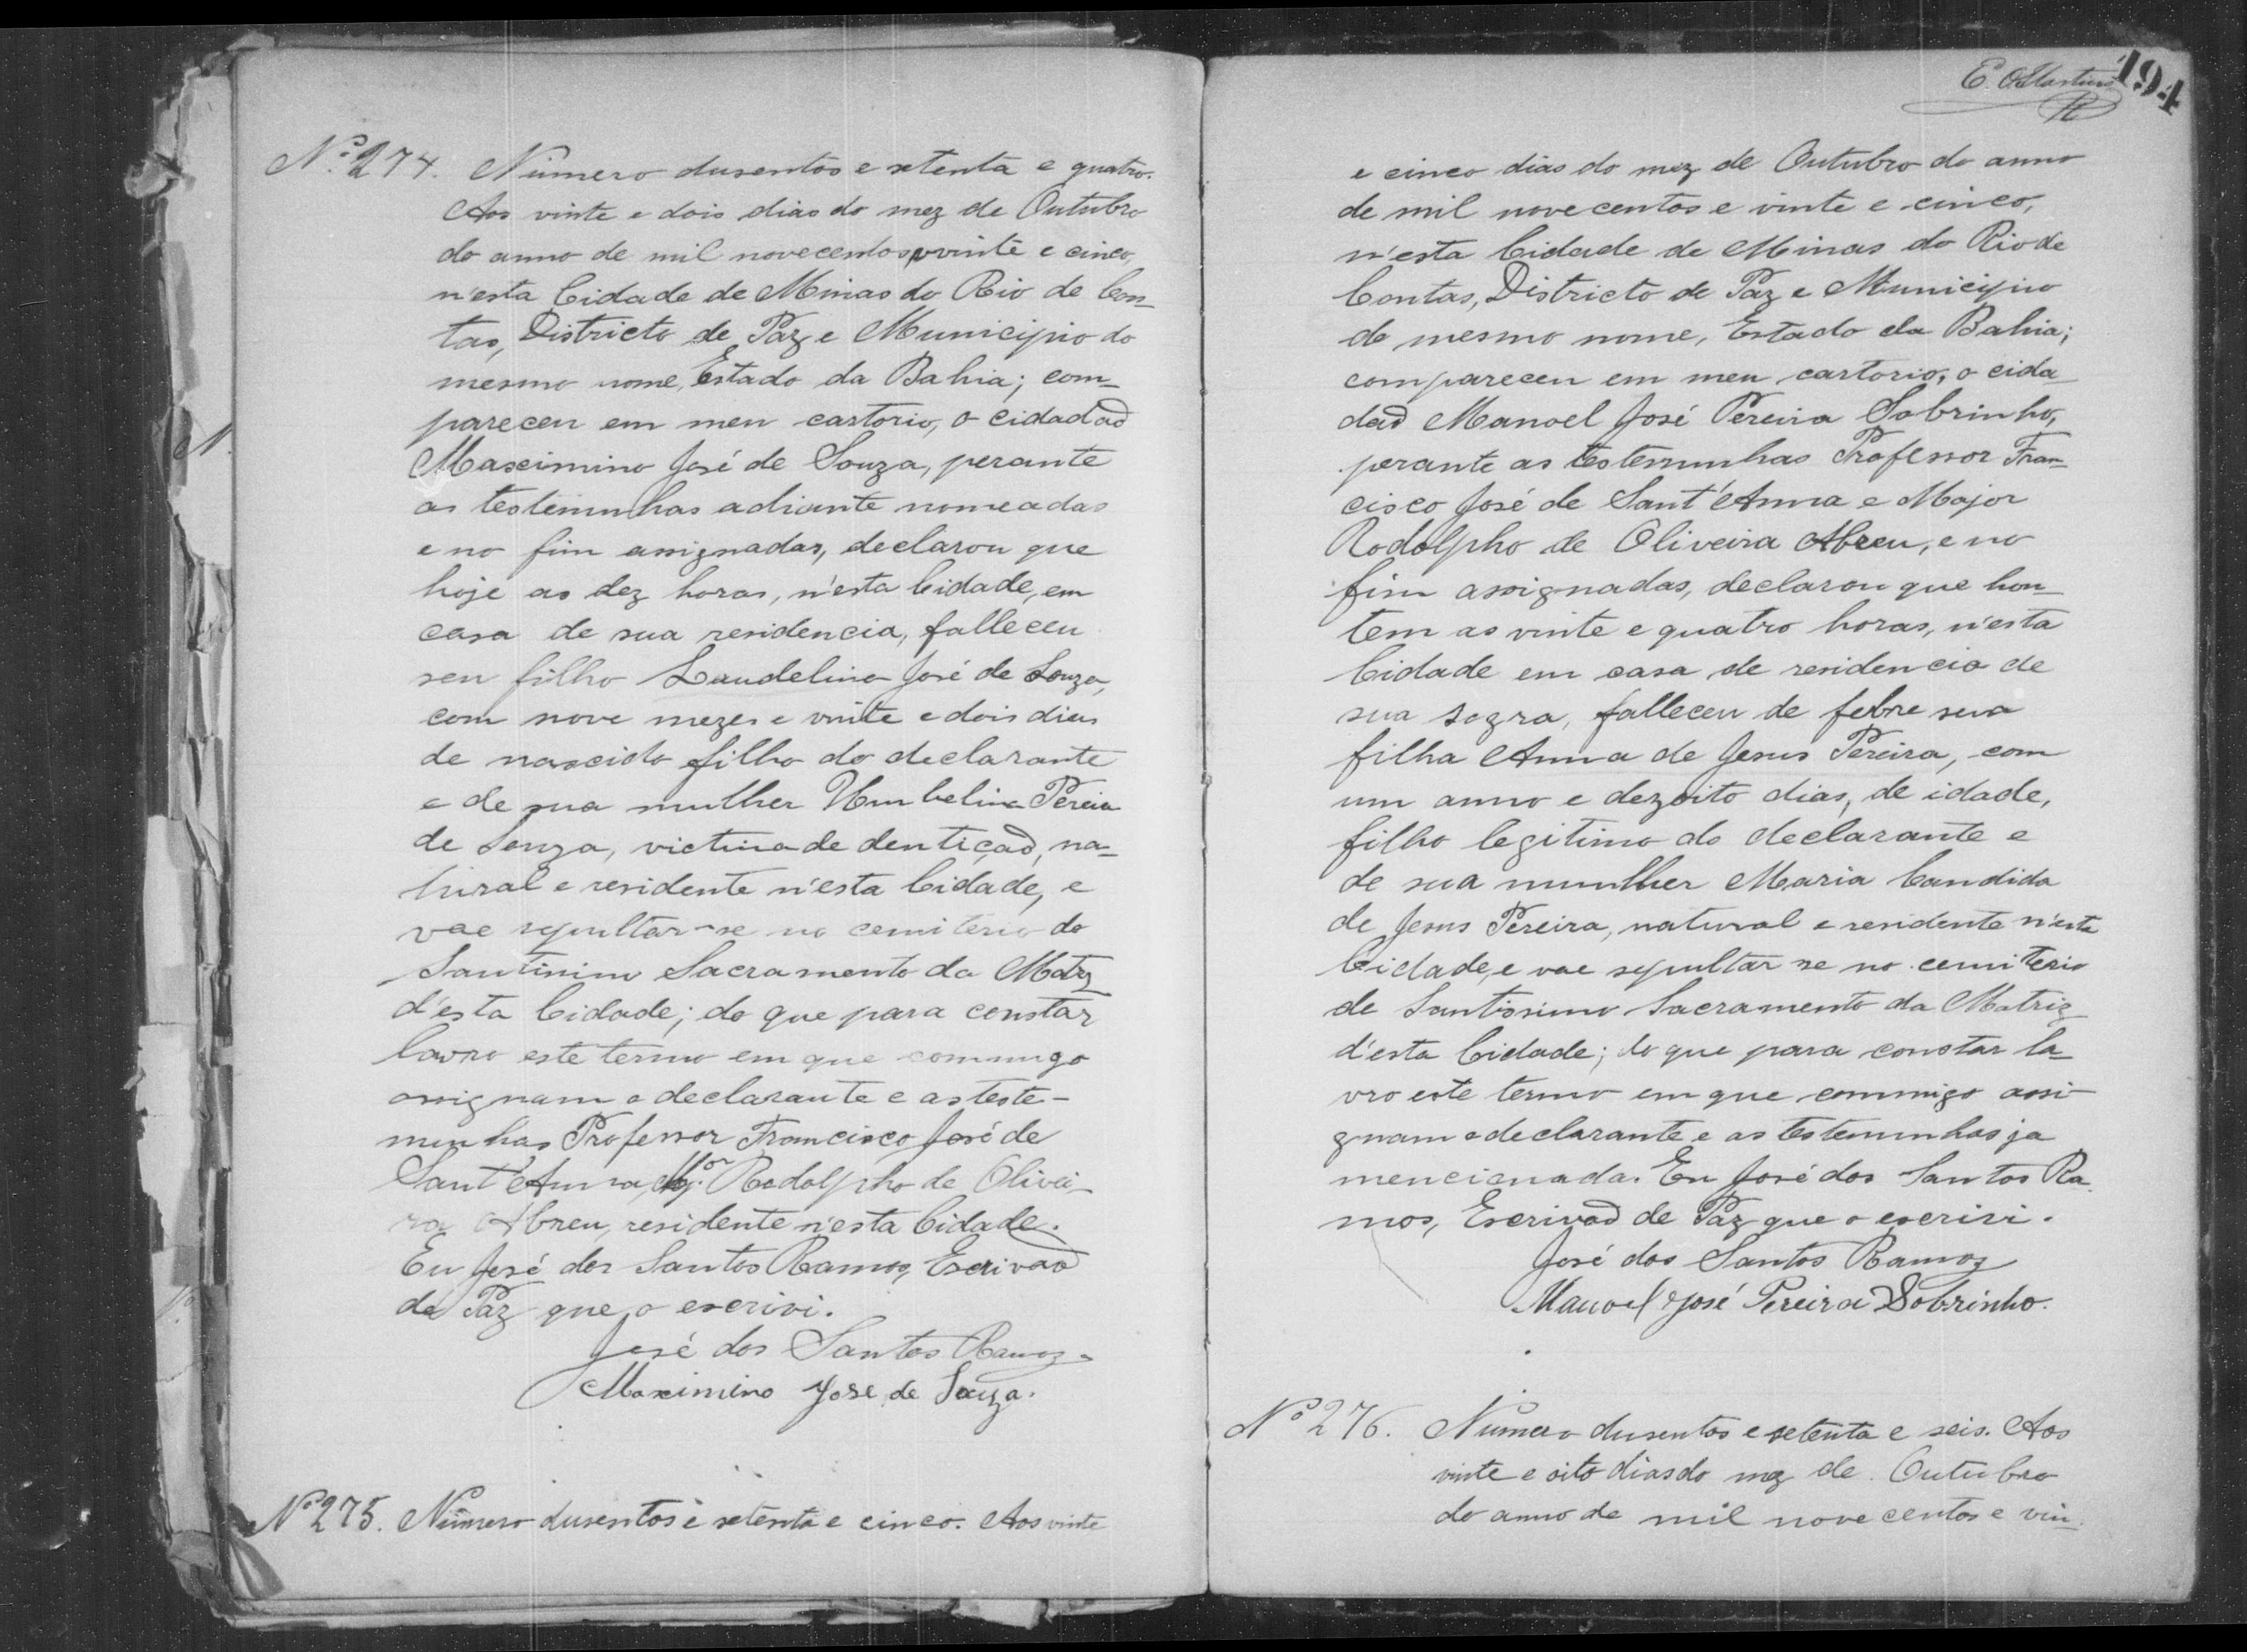 Nº 274. Número dusentos e setenta e quatro.
Aos vinte e dois dias do mez de Outubro
do anno de mil novecentos e vinte e cinco,
n'esta Cidade de Minas do Rio de Con-
tas, Districto de Paz e Municipio do
mesmo nome, Estado da Bahia; com-
pareceu em meu cartorio, o cidadaõ
Maximino José de Souza, perante
as testemunhas adiante nomeadas
e no fim assignadas, declarou que
hoje as dez horas, n'esta Cidade, em
casa de sua residencia, falleceu
seu filho Laudelino José de Souza,
com nove mezes e vinte e dois dias
de nascido filho do declarante
e de sua mulher Umbelina Pereira
de Souza, victima de dentiçaõ, na-
tural e residente n'esta Cidade, e
vae sepultar-se no cemiterio do
Santissimo Sacramento da Matriz
d'esta Cidade; do que para constar
lavro este termo em que commigo
assignam o declarante e as teste-
munhas Professor Francisco José de
Sant'Anna, Rodolpho de Olivei-
ra Abreu, residente n'esta Cidade.
Eu José dos Santos Ramos, Escrivaõ
de Paz que o escrivi.
José dos Santos Ramos
Maximino José de Souza.
Nº 275. Número dusentos e setenta e cinco. Aos vinte
194
e cinco dias do mez de Outubro do anno
de mil nove centos e vinte e cinco,
n'esta Cidade de Minas do Rio de
Contas, Districto de Paz e Municipio
do mesmo nome, Estado da Bahia;
compareceu em meu cartorio, o cida-
daõ Manoel José Pereira Sobrinho,
perante as testemunhas Professor Fran-
cisco José de Sant'Anna e Major
Rodolpho de Oliveira Abreu, e no
fim assignadas, declarou que hon-
tem as vinte e quatro horas, n'esta
Cidade em casa de residencia de
sua sogra, falleceu de febre sua
filha Anna de Jesus Pereira, com
um anno e dezoito dias, de idade,
filho legitimo do declarante e
de sua mumlher Maria Candida
de Jesus Pereira, natural e residente n'esta
Cidade, e vae sepultar se no cemiterio
de Santissimo Sacramento da Matriz
d'esta Cidade; do que para constar la-
vro este termo em que commigo assi-
gnam o declarante e as testemunhas ja
mencionada. Eu José dos Santos Ra-
mos, Escrivaõ de Paz que o escrivi.
José dos Santos Ramos
Manoel José Pereira Sobrinho.
Nº 276. Número dusentos e setenta e seis. Aos
vinte e oito dias do mez de Outubro
do anno de mil nove centos e vin-